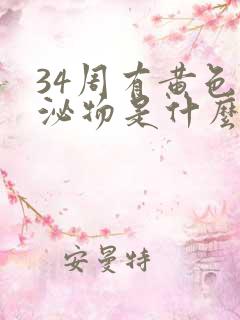 34周有黄色
泌物是什麼
安曼特